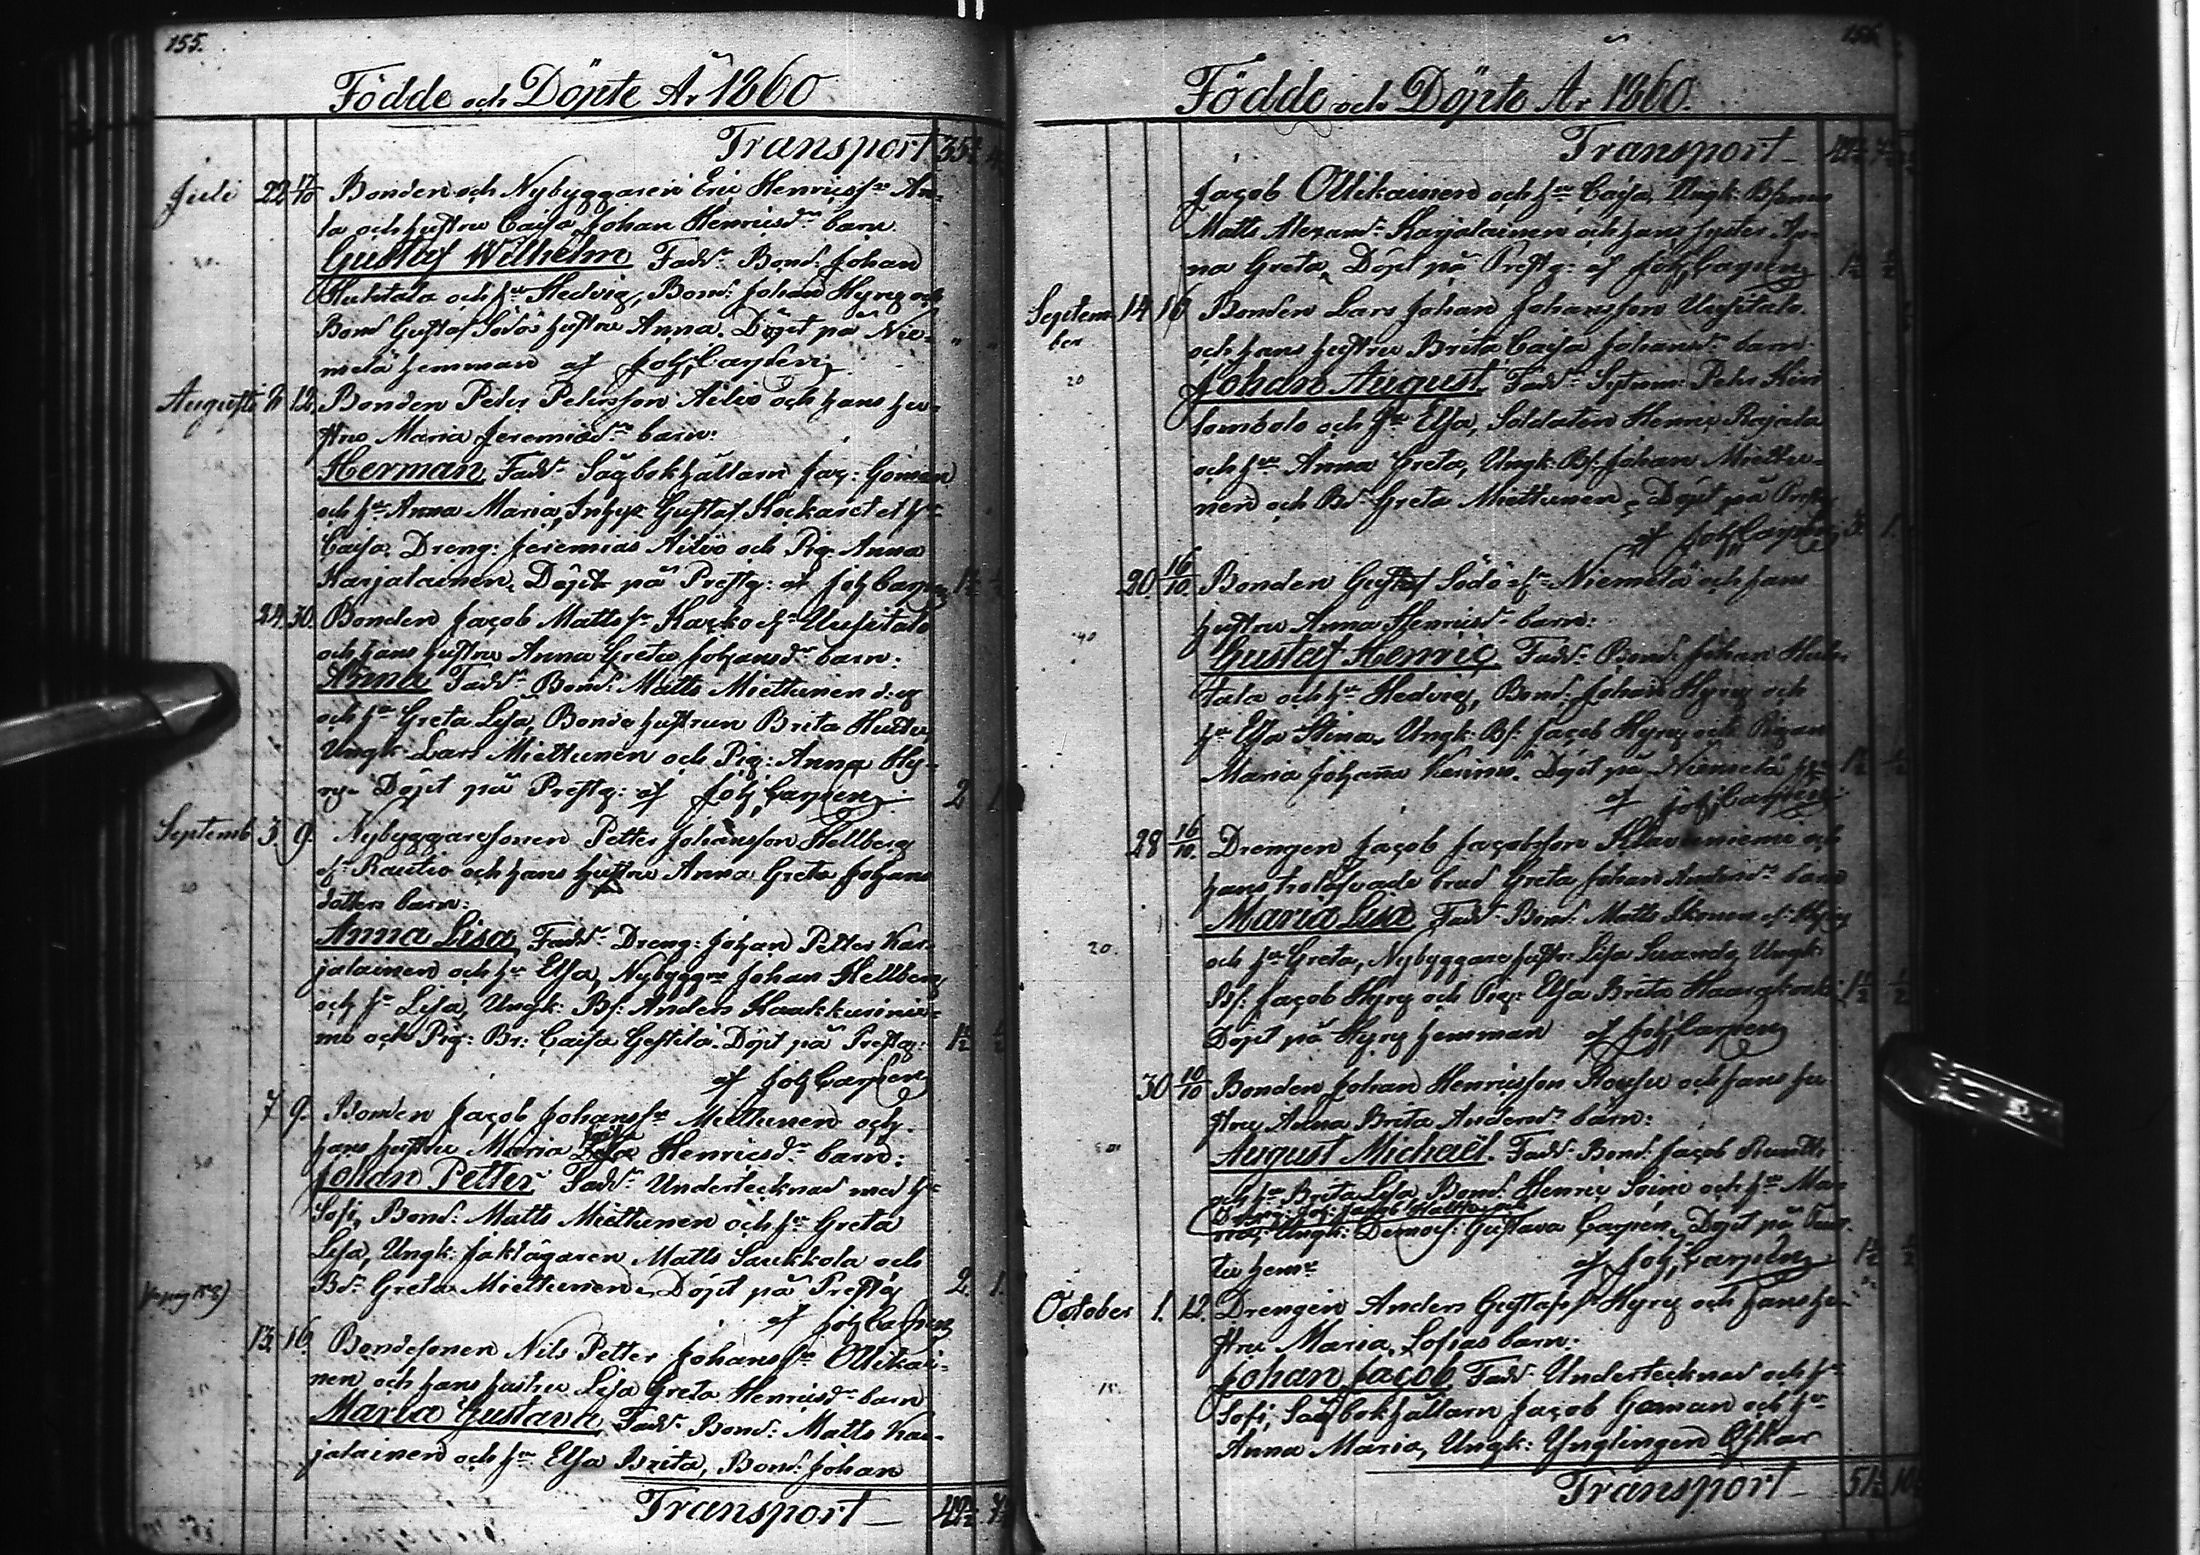 155.
Födde och Döpte År 1860
Transport 35½
Juli 22 17/10 Bonden och Nybyggaren Eric Henricss:n An-
la och hustru Caisa Johan Henricsd:r barn
Gustaf Wilhelm Fadd:r Bond: Johan
Huhtala och h:u Hedvig, Bond: Johan Hyry och
Bond Gustaf Södös hustru Anna. Döpt på Nie-
melä hemman af Joh: Carpen
Augusti 12. Bonden Petter Petersson Ailio och hans hu-
stru Maria Jeremiæd:r barn:
Herman Fadd:r Sågbokhållarn Jac: Göman
och h:u Anna Maria, Gustaf et h:u
Caisa, Dreng: Jeremias Ailio och Pig: Anna
Karjalainen. Döpt på Prestg: af Joh Carpen 1½ ½
24. 30. Bonden Jacob Mattss:n Kacko el:r Uusitalo
och hans hustru Anna Greta Johansd:r barn:
Anna Fadd:r Bond: Matts Miettunen
och h:u Greta Lisa, Bonde hustrun Brita
Ungk: Lars Miettunen och Pig: Anna Hy-
ry. Döpt på Prestg: af Joh Carpen 2 1
Septemb 3. 9. Nybyggaresonen Petter Johansson Hellberg
el: Rautio och hans hustru Anna Greta Johans
dotters barn:
Anna Lisa, Fadd:r Dreng: Johan Petter Kar-
jalainen och h:u Elsa, Nybyggrn Johan Hellberg
och h:u Lisa, Ungk: Bs: Anders Haakkurinie-
mi och Pig: Br: Caisa Gestilä. Döpt på Prestg: 1½ ½
af Joh Carpen
7. 9. Bonden Jacob Johanss:n Miettunen och
hans hustru Maria Henricsd:r barn:
Johan Petter Fadd:r Undertecknad med h:u
Sofi, Bond: Matts Miettunen och h:u Greta
Lisa, Ungk: Matts Saukkola och
Bd:r Greta Miettunen. Döpt på Prestg 2. 1.
af Joh Carpen
13. 16. Bondesonen Nils Petter Johanss:n Ollikai-
nen och hans hustru Lisa Greta Henricsd:r barn
Maria Gustava Fadd:r Bond: Matts Kar-
jalainen och h:u Elsa Brita, Bond: Johan
Transport
Födde och Döpte År 1860.
Transport
Jacob Ollikainen och h:u Caisa, Ungk: Bsonen
Matts Alexand:r Karjalainen och hans syster An-
na Greta. Döpt på Prestg: af Joh Carpen 1½ ½
Septem- 14 16 Bonden Lars Johan Johansson Uusitalo
ber och hans hustru Brita Caisa Johansd:r barn
20 Johan August. Fadd:r Sytnm: Petter Kivi
lombolo och h:u Elsa, Soldaten Henric Rajala
och h:u Anna Greta, Ungk: Bs: Johan Miettu-
nen och Bd:r Greta Miettunen. Döpt på Prestg
af Joh Carpen 3. 1.
20. 16/10 Bonden Gustaf Södö el:r Niemelä och hans
hustru Anna Henricsd:r barn:
40 Gustaf Henric Fadd:r Bond: Johan Huh-
tala och h:u Hedvig, Bond: Johan Hyry och
h:u Elsa Stina, Ungk: Bs: Jacob Hyry och Pigan
Maria Johanna Keränen. Döpt på Niemelä h:n 1½ ½
af Joh Carpen
28 16/10. Drengen Jacob Jacobsson Klaviniemi och
hans trolofvade brud Greta Johan Andersd:r barn
Maria Lisa Fadd:r Bond: Matts Ikonen el: Hyry
20. och h:u Greta, Nybyggare hustr: Lisa Suando, Ungk:
Bs: Jacob Hyry och Pig: Elsa Brita Haarakoski 1½ ½
Döpt på Hyry hemman af Joh Carpen
30 10/10 Bonden Johan Henricsson Rousu och hans hu-
stru Anna Brita Andersd:r barn:
August Michaël. Fadd:r Bond: Jacob
och h:u Brita Lisa, Bond: Henric Soini och h:u Ma-
ria, Ungk: Demois: Gustava Carpén. Döpt på
tu hem:n af Joh Carpén 1½ ½
October 1. 12. Drengen Anders Gustafss:n Hyry och hans hu-
stru Maria Sofias barn:
15. Johan Jacob Fadd:r Undertecknad och h:u
Sofi, Sågbokhållarn Jacob Göman och h:u
Anna Maria, Ungk: Ynglingen Oskar
Transport 51½ 10